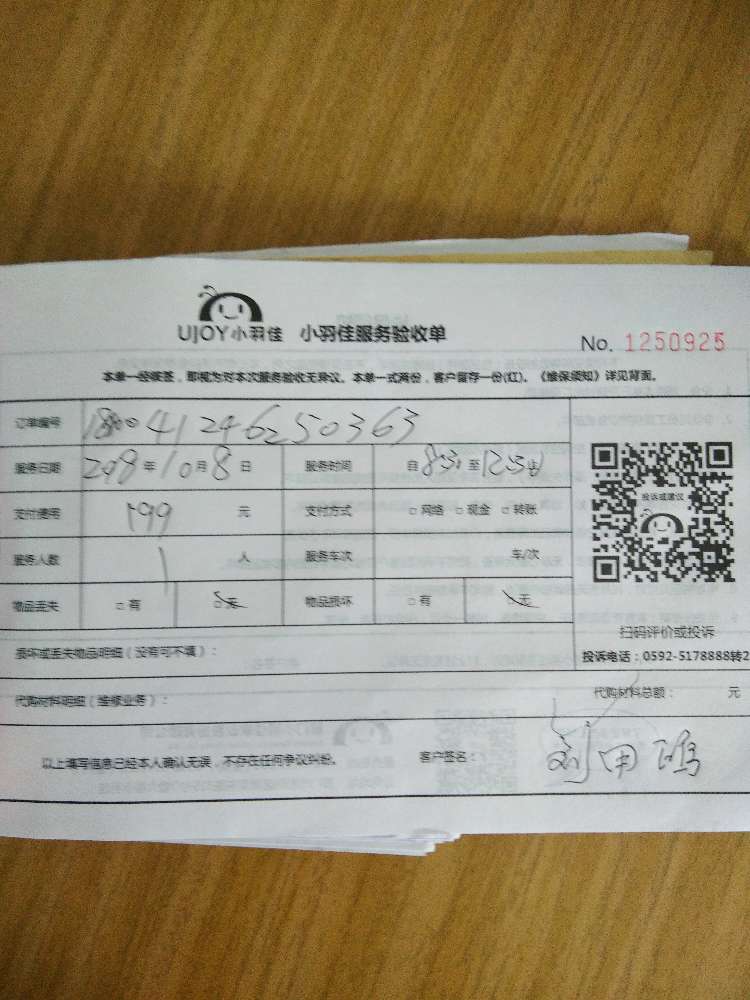 UJOY小羽佳 小羽佳服务验收单
No. 1250925
本单一经签签，即视为对本次服务验收无异议。本单一式两份，客户留存一份(红)。《维保须知》详见背面。
订单编号
服务日期 年10月8日 服务时间 自8:30至12:30
支付费用 199 元 支付方式 □网络 □现金 □转账
服务人数 1 人 服务车次 车/次
物品丢失 □有 □无 物品损坏 □有 □无
投诉或建议
扫码评价或投诉
投诉电话：0592-5178888转2
损坏或丢失物品明细（没有可不填）：
代购材料明细（维修业务）： 代购材料总额： 元
以上填写信息已经本人确认无误，不存在任何争议纠纷。 客户签名：刘甲鸿